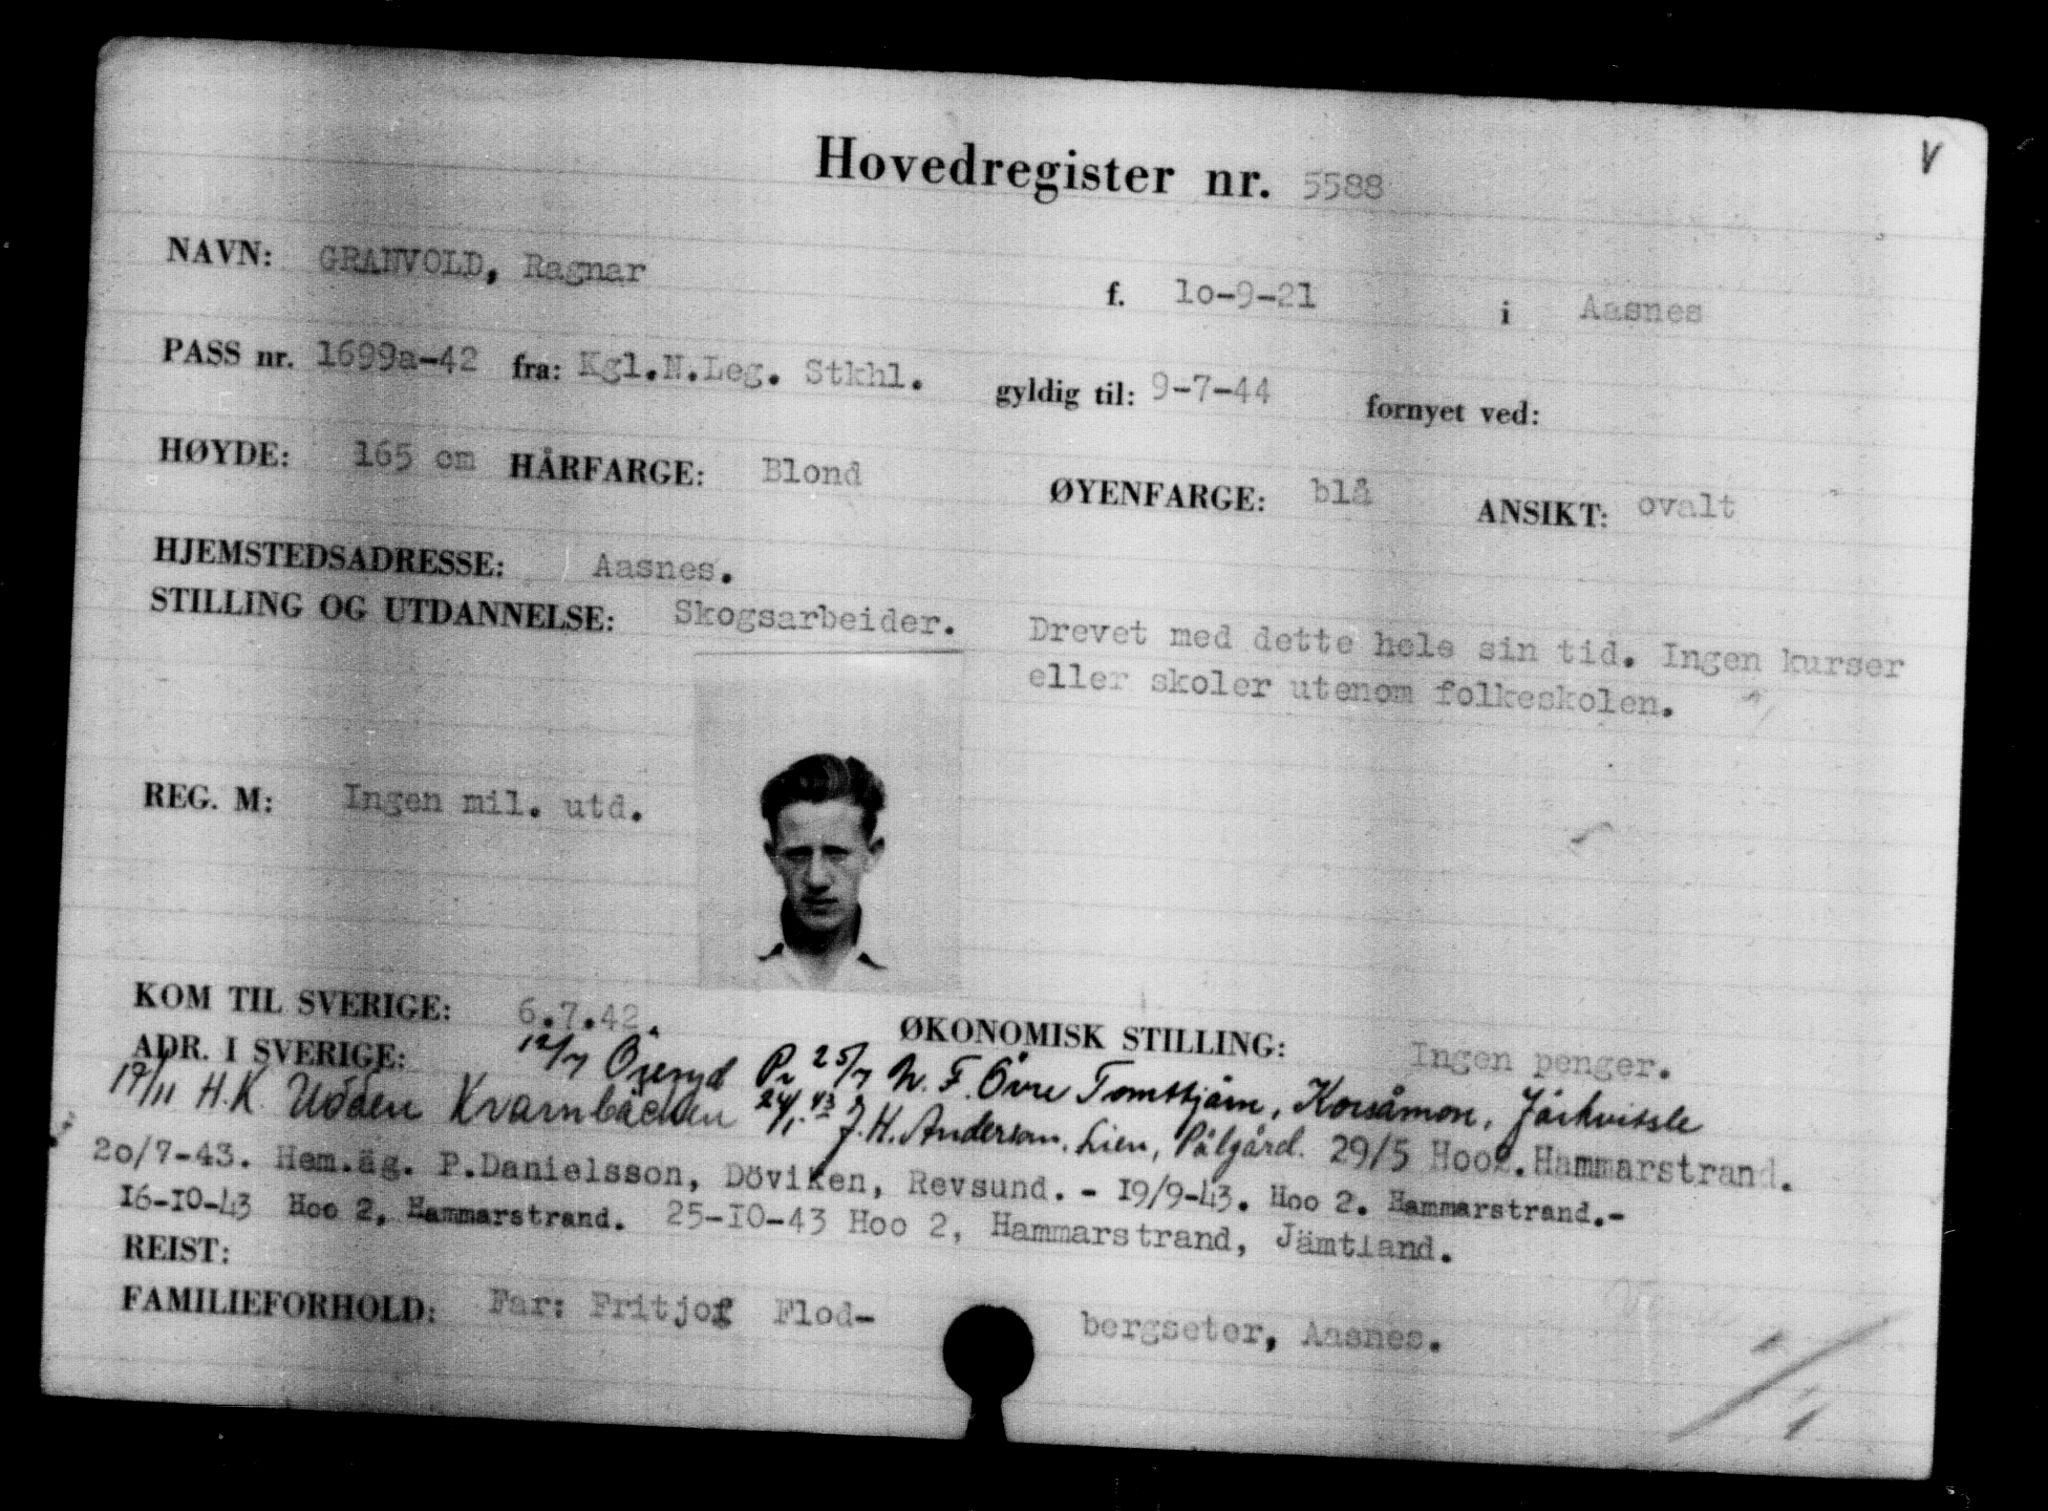 V
Hovedregister nr. 5588
NAVN: GRANVOLD, Ragnar f. 10-9-21 i Aasnes
PASS nr. 1699a-42 fra: Kgl.N.Leg. Stkhl. gyldig til: 9-7-44 fornyet ved:
HØYDE: 165 cm HÅRFARGE: Blond ØYENFARGE: blå ANSIKT: ovalt
HJEMSTEDSADRESSE: Aasnes.
STILLING OG UTDANNELSE: Skogsarbeider. Drevet med dette hele sin tid. Ingen kurser
eller skoler utenom folkeskolen.
REG. M: Ingen mil. utd.
KOM TIL SVERIGE: 6.7.42. ØKONOMISK STILLING: Ingen penger.
ADR. I SVERIGE: 12/7 Öreryd Pr 25/7 N. F. Övre Tomttjärn, Korsåmon, Järkvissle
17/11 H.K. Udden Kvarnbäcken 24/1.43 J.H. Anderson. Lien, Pålgård. 29/5 Hoo2. Hammarstrand.
20/7-43. Hem.äg. P.Danielsson, Döviken, Revsund. - 19/9-43. Hoo 2. Hammarstrand.-
16-10-43 Hoo 2, Hammarstrand. 25-10-43 Hoo 2, Hammarstrand, Jämtland.
REIST:
FAMILIEFORHOLD: Far: Fritjof Flod- bergseter, Aasnes.